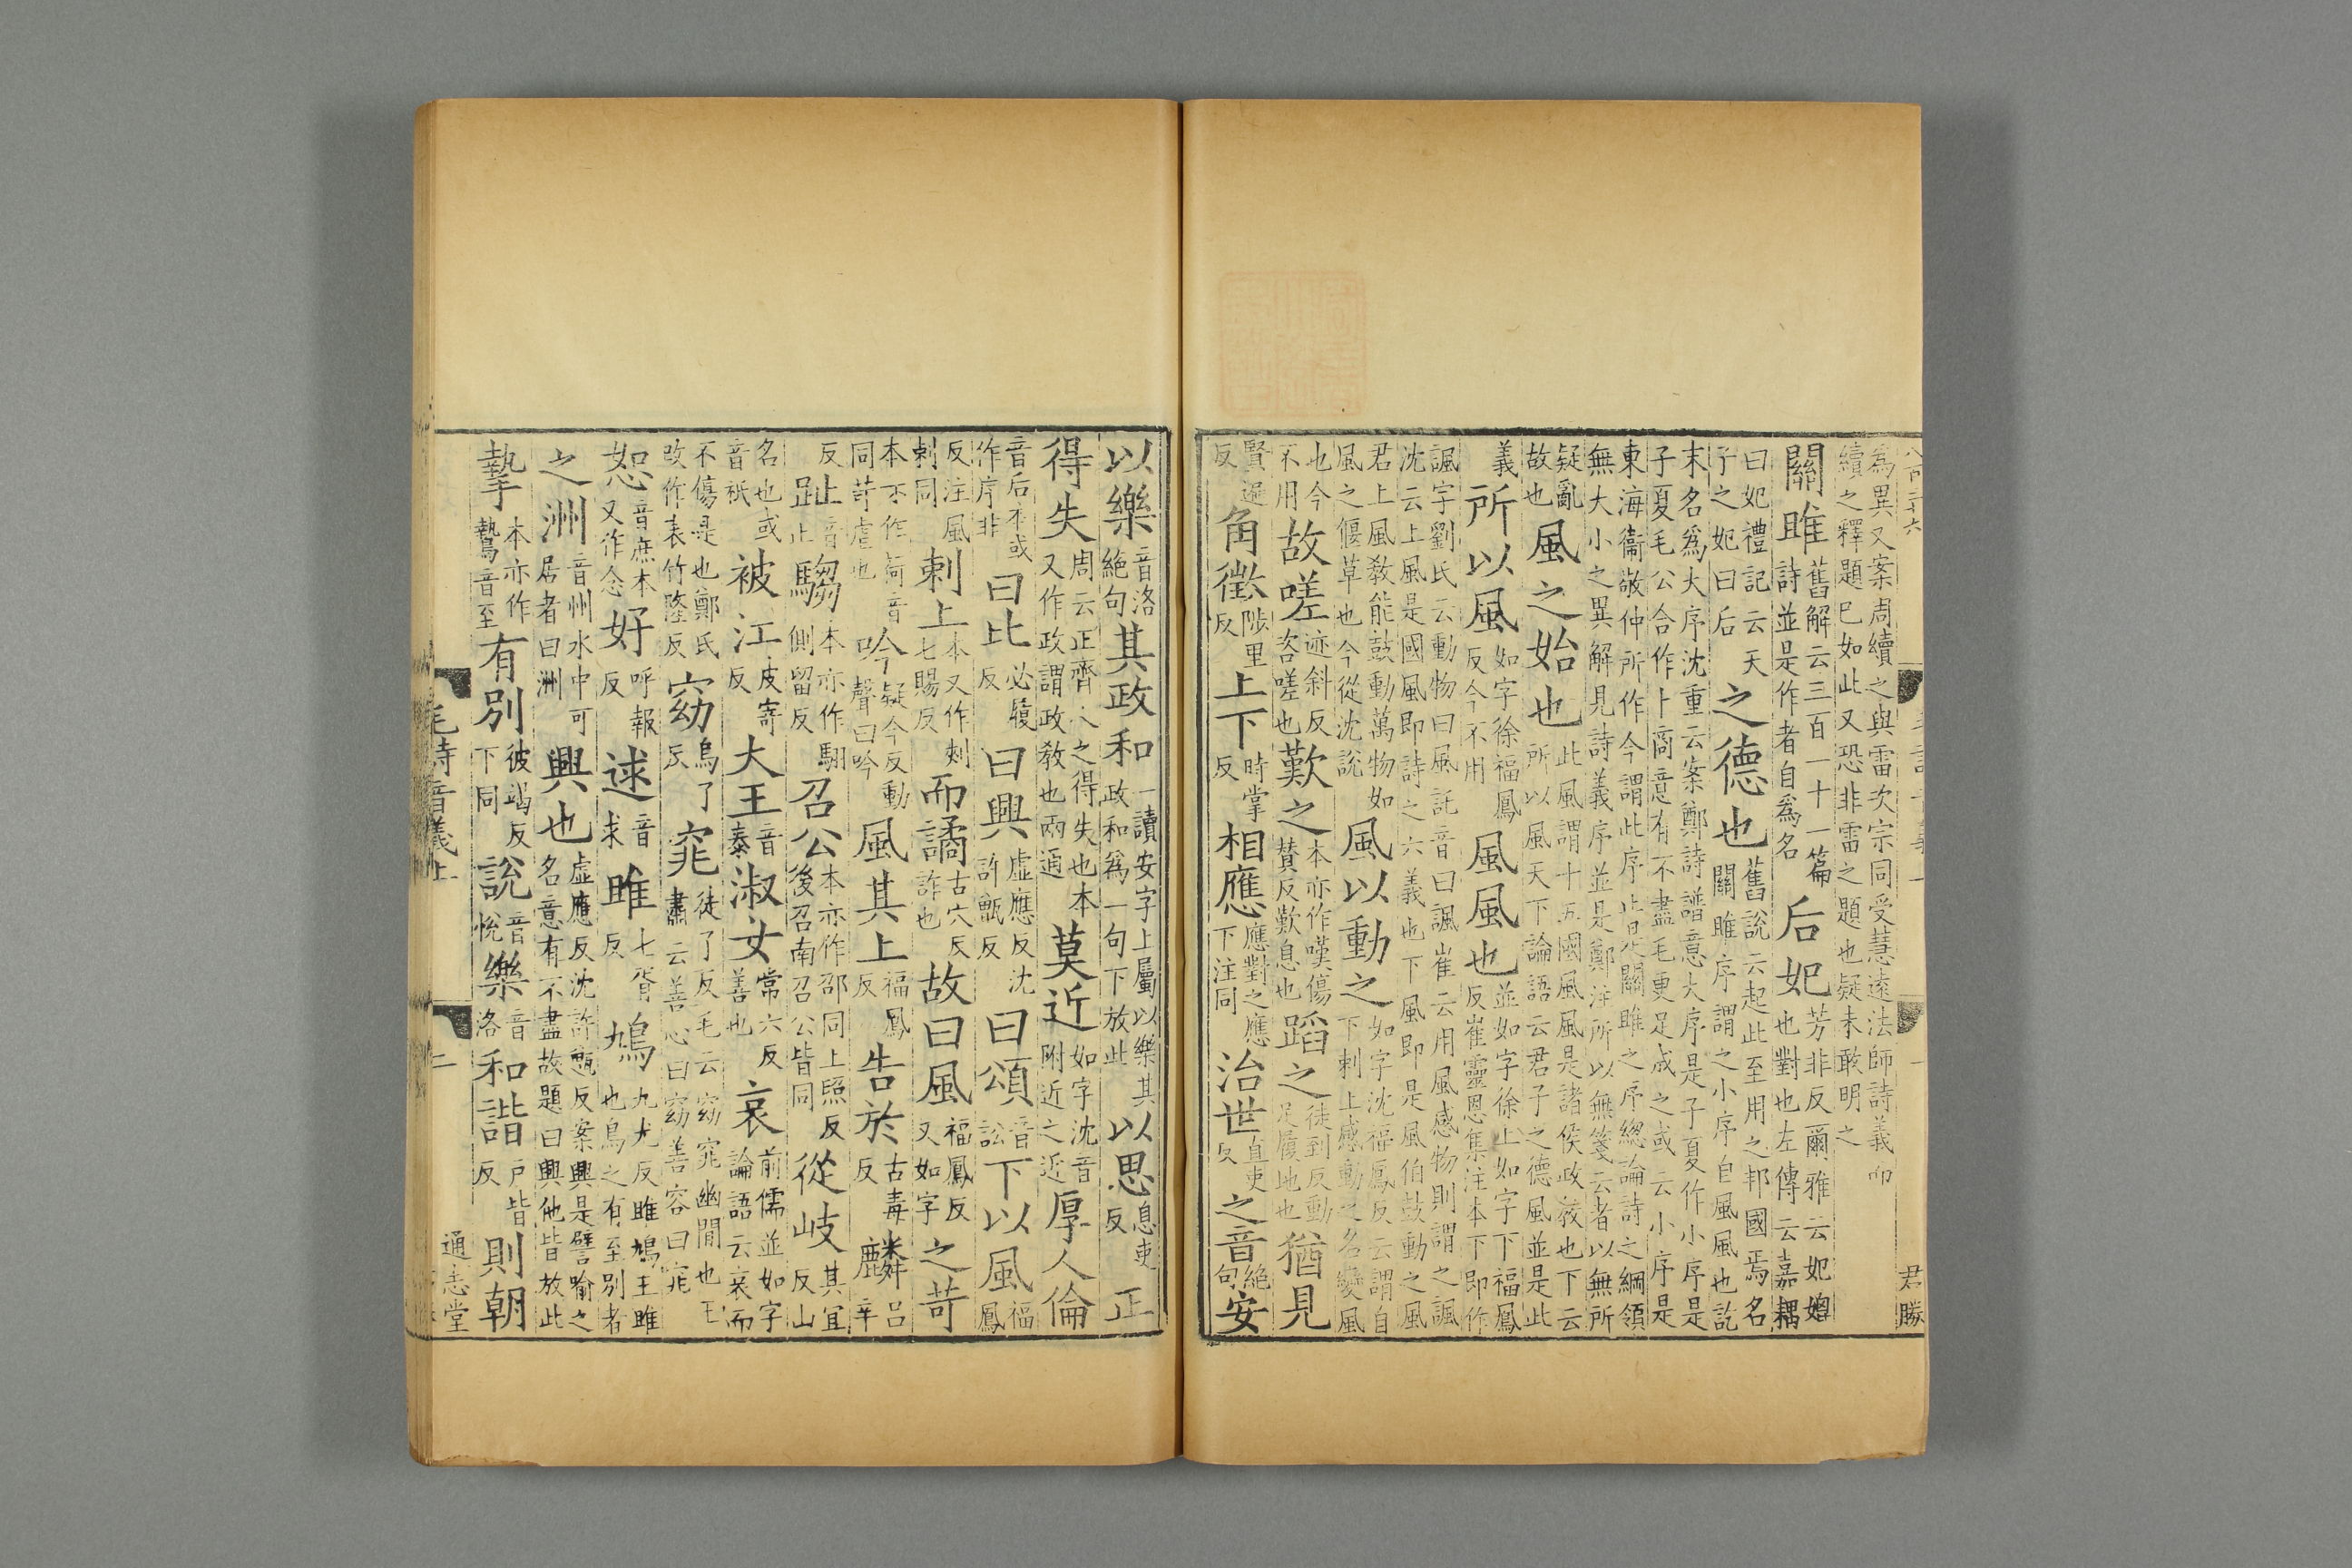 八百二十六
君勝
為異又案周續之與雷次宗同受慧遠法師詩義而續之釋題已如此又恐非雷之題也疑未敢明之
關雎舊解云三百一十一篇詩並是作者自為名后妃芳非反爾雅云妃媲也對也左傳云嘉耦
曰妃禮記云天子之妃曰后之德也舊說云起此至用之邦國焉名關雎序謂之小序自風風也訖
末名為大序沈重云案鄭詩譜意大序是子夏作小序是子夏毛公合作卜商意有不盡毛更足成之或云小序是
東海衞敬仲所作今謂此序止是關雎之序緫論詩之綱領無大小之異解見詩義序並是鄭注所以無箋云者以無所
疑亂故也風之始也此風謂十五國風風是諸侯政教也下云所以風天下論語云君子之德風並是此
義所以風如字徐福鳳反今不用風風也並如字徐上如字下福鳳反崔靈恩集注本下即作
諷字劉氏云動物曰風託音曰諷崔云用風感物則謂之諷沈云上風是國風即詩之六義也下風即是風伯鼓動之風
君上風教能鼓動萬物如風之偃草也今從沈說風以動之如字沈福鳳反云謂自下刺上感動之名變風
也今不用故嗟迹斜反咨嗟也歎之本亦作嘆傷贊反歎息也蹈之徒到反動足履地也猶見
賢遍反角徵陟里反上下時掌反相應應對之應下注同治世直吏反之音絕句安
以樂音洛絕句其政和一讀安字上屬以樂其政和為一句下放此以思息吏反正
得失周云正齊人之得失也本又作政謂政教也兩通莫近如字沈音附近之近厚人倫
音后本或作序非曰比必履反曰興虛應反沈許甑反曰頌音訟下以風福鳳
反注風刺同刺上本又作刾七賜反而譎古穴反詐也故曰風福鳳反又如字之苛
本亦作荷音同苛虐也吟疑今反動聲曰吟風其上福鳳反告於古毒反麟呂辛
反趾音止騶本亦作騶側留反召公本亦作邵同上照反後召南召公皆同從岐其宜反山
名也或音祇被江皮寄反大王音泰淑女常六反善也哀前儒並如字論語云哀而
不傷是也鄭氏改作衷竹隆反窈烏了反窕徒了反毛云窈窕幽閒也王肅云善心曰窈善容曰窕
恕音庶本又作念好呼報反逑音求雎七胥反鳩九尤反雎鳩王雎也鳥之有至別者
之洲音州水中可居者曰洲興也虛應反沈許甑反案興是譬喻之名意有不盡故題曰興他皆放此
摯本亦作鷙音至有別彼竭反下同說音悅樂音洛和諧戶皆反則朝
毛詩音義上
二
通志堂